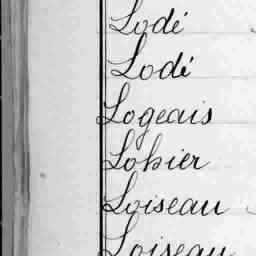 Lodé
Lodé
Logeais
Lohier
Loiseau
Loiseau